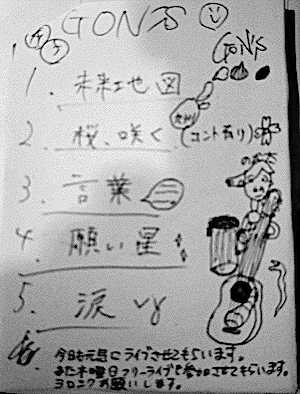 GON'S
GON'S
1. 未来地図
2. 桜、咲く (コント有り)
3. 言葉
4. 願い星
5. 涙
今日も元気にライブさせてもらいます。
また木曜日フリーライブで参加させてもらいます。
ヨロシクお願いします。